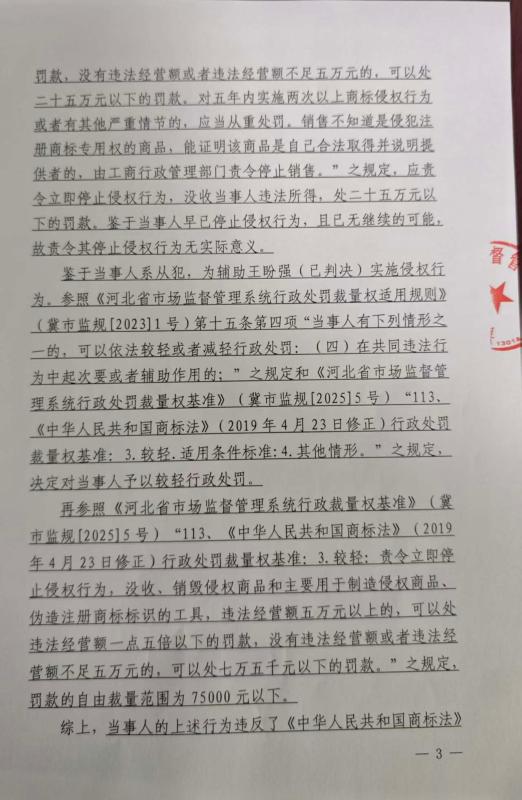 罚款，没有违法经营额或者违法经营额不足五万元的，可以处
二十五万元以下的罚款。对五年内实施两次以上商标侵权行为
或者有其他严重情节的，应当从重处罚。销售不知道是侵犯注
册商标专用权的商品，能证明该商品是自己合法取得并说明提
供者的，由工商行政管理部门责令停止销售。”之规定，应责
令立即停止侵权行为，没收当事人违法所得，处二十五万元以
下的罚款。鉴于当事人早已停止侵权行为，且已无继续的可能，
故责令其停止侵权行为无实际意义。
鉴于当事人系从犯，为辅助王盼强（已判决）实施侵权行
为。参照《河北省市场监督管理系统行政处罚裁量权适用规则》
（冀市监规[2023]1号）第十五条第四项“当事人有下列情形之
一的，可以依法较轻或者减轻行政处罚：（四）在共同违法行
为中起次要或者辅助作用的；”之规定和《河北省市场监督管
理系统行政处罚裁量权基准》（冀市监规[2025]5号）“113、
《中华人民共和国商标法》（2019年4月23日修正）行政处罚
裁量权基准：3.较轻.适用条件标准:4.其他情形。”之规定，
决定对当事人予以较轻行政处罚。
再参照《河北省市场监督管理系统行政裁量权基准》（冀
市监规[2025]5号）“113、《中华人民共和国商标法》（2019
年4月23日修正）行政处罚裁量权基准：3.较轻：责令立即停
止侵权行为，没收、销毁侵权商品和主要用于制造侵权商品、
伪造注册商标标识的工具，违法经营额五万元以上的，可以处
违法经营额一点五倍以下的罚款，没有违法经营额或者违法经
营额不足五万元的，可以处七万五千元以下的罚款。”之规定，
罚款的自由裁量范围为75000元以下。
综上，当事人的上述行为违反了《中华人民共和国商标法》
— 3 —
督